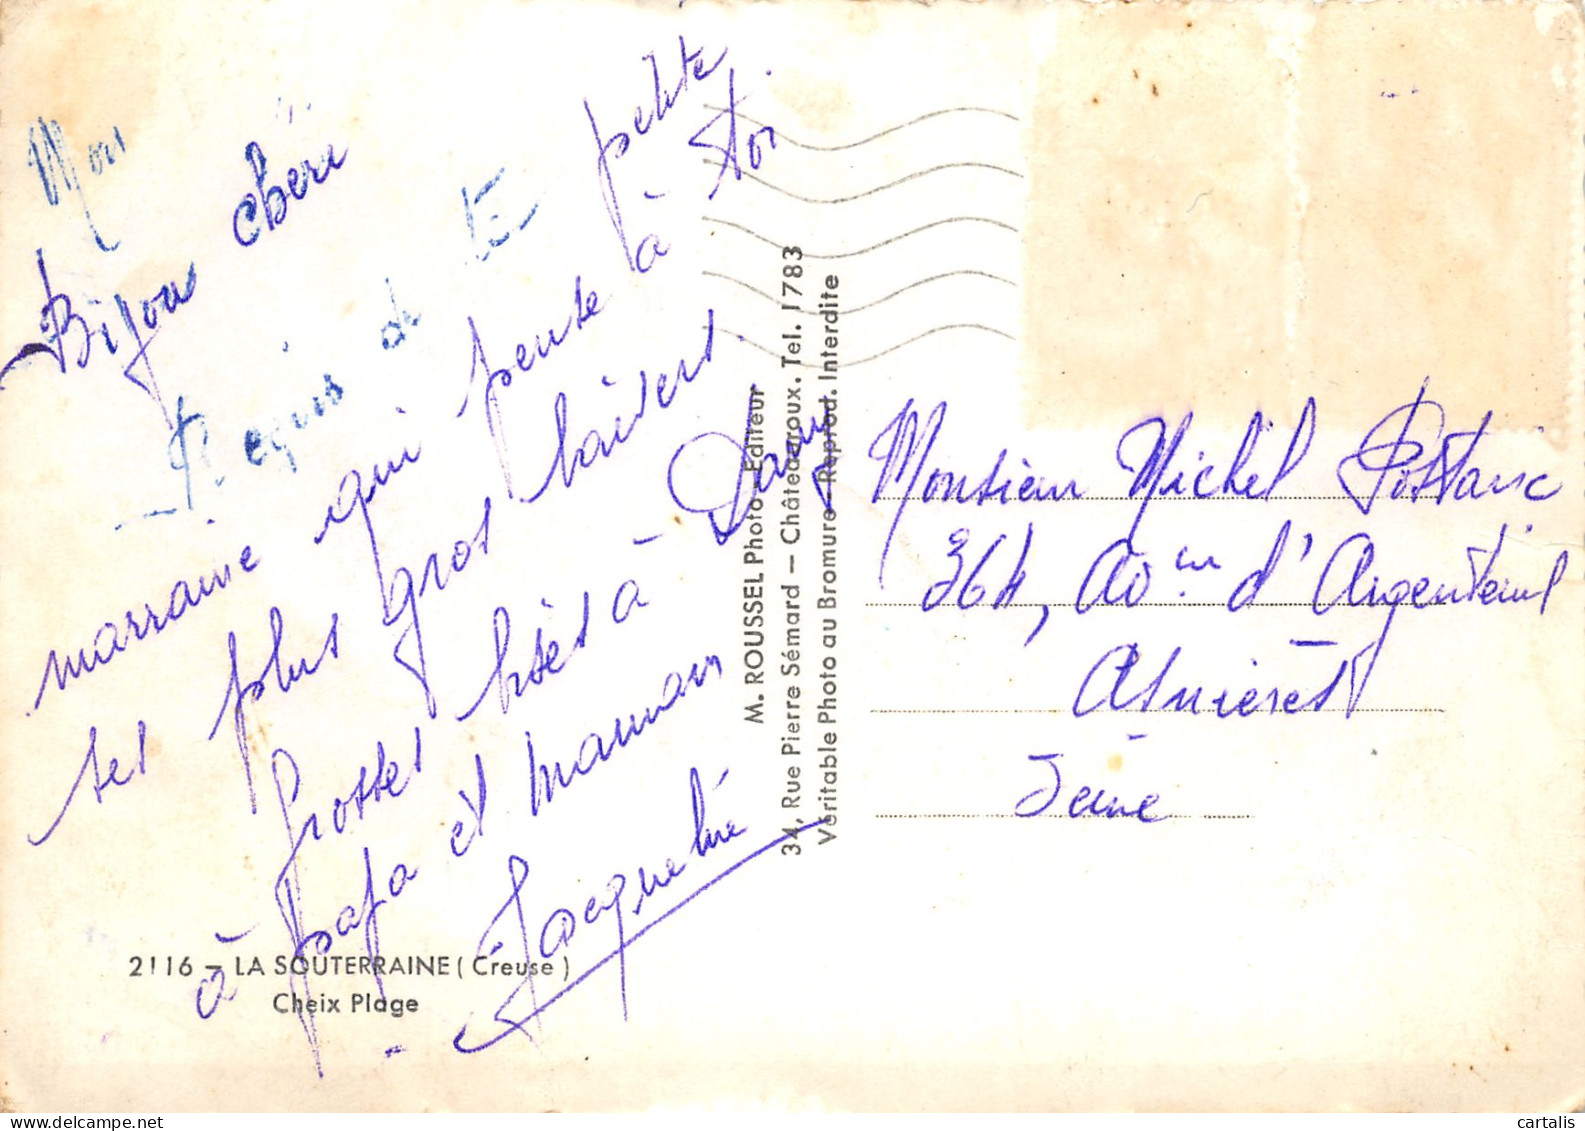 Mon
Bijou chéri
Reçois de ta petite
marraine qui pense à toi
ses plus gros baisers.
Grosses bises à
à papa et maman
Jacqueline
2116 - LA SOUTERRAINE ( Creuse )
Cheix Plage
M. ROUSSEL Photo-Editeur
34, Rue Pierre Sémard — Châteauroux. Tel. 1783
Véritable Photo au Bromure - Reprod. Interdite
Monsieur Michel
364, Avenue d'Argenteuil
Asnières
Seine
cartalis